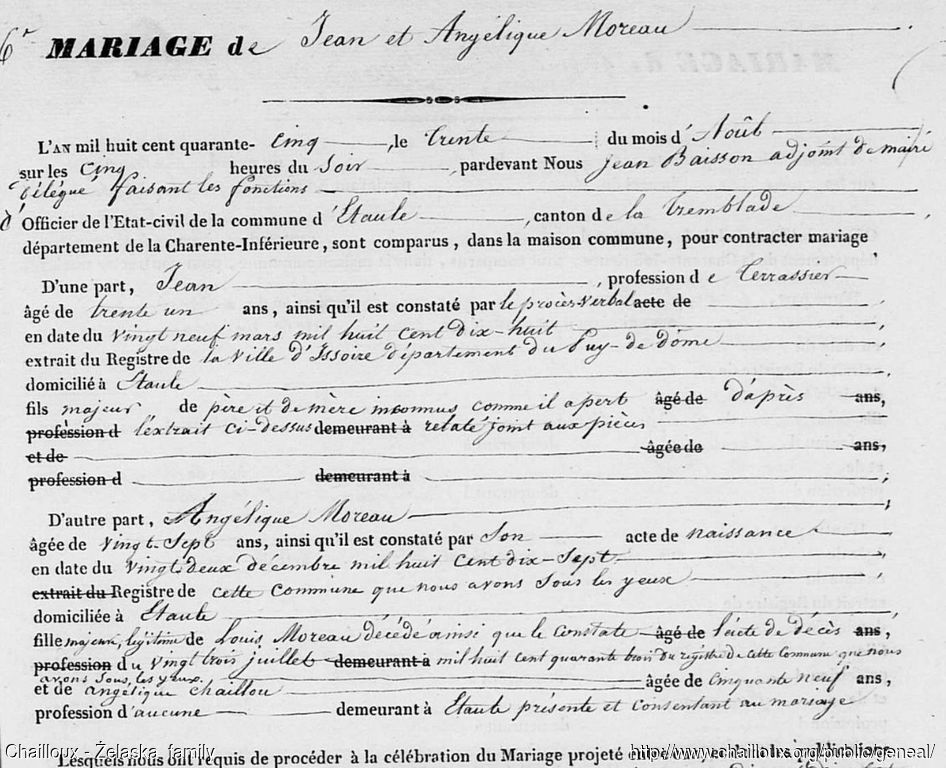 6e MARIAGE de Jean et Angélique Moreau
L'AN mil huit cent quarante-Cinq, le trente du mois d'Août
sur les Cinq heures du Soir, pardevant Nous Jean Baisson adjoint de maire
délégué faisant les fonctions
d'Officier de l'Etat-civil de la commune d'Etaule, canton de la Tremblade,
département de la Charente-Inférieure, sont comparus, dans la maison commune, pour contracter mariage
D'une part, Jean, profession de terrassier
âgé de trente un ans, ainsi qu'il est constaté par le procès verbal acte de
en date du vingt neuf mars mil huit cent dix-huit,
extrait du Registre de la Ville d'Issoire département du Puy-de-dôme,
domicilié à Etaule,
fils majeur de père et de mère inconnus, comme il apert âgé de d'après ans,
profession d l'extrait ci-dessus demeurant à relaté joint aux pièces
et de âgée de ans,
profession d demeurant à
D'autre part, Angélique Moreau,
âgée de vingt-Sept ans, ainsi qu'il est constaté par Son acte de naissance,
en date du vingt deux décembre mil huit cent dix-Sept,
extrait du Registre de cette Commune que nous avons sous les yeux,
domiciliée à Etaule,
fille majeure, légitime de Louis Moreau décédé ainsi que le Constate âgé de l'acte de décès ans,
profession du vingt trois juillet demeurant à mil huit cent quarante trois du registre de cette Commune que nous
avons sous les yeux.
et de angélique chaillou âgée de Cinquante neuf ans,
profession d'aucune demeurant à Etaule présente et consentant au mariage
Lesquels nous ont requis de procéder à la célébration du Mariage projeté entre
Chailloux - Żelaska family
http://www.chailloux.org/public/geneal/